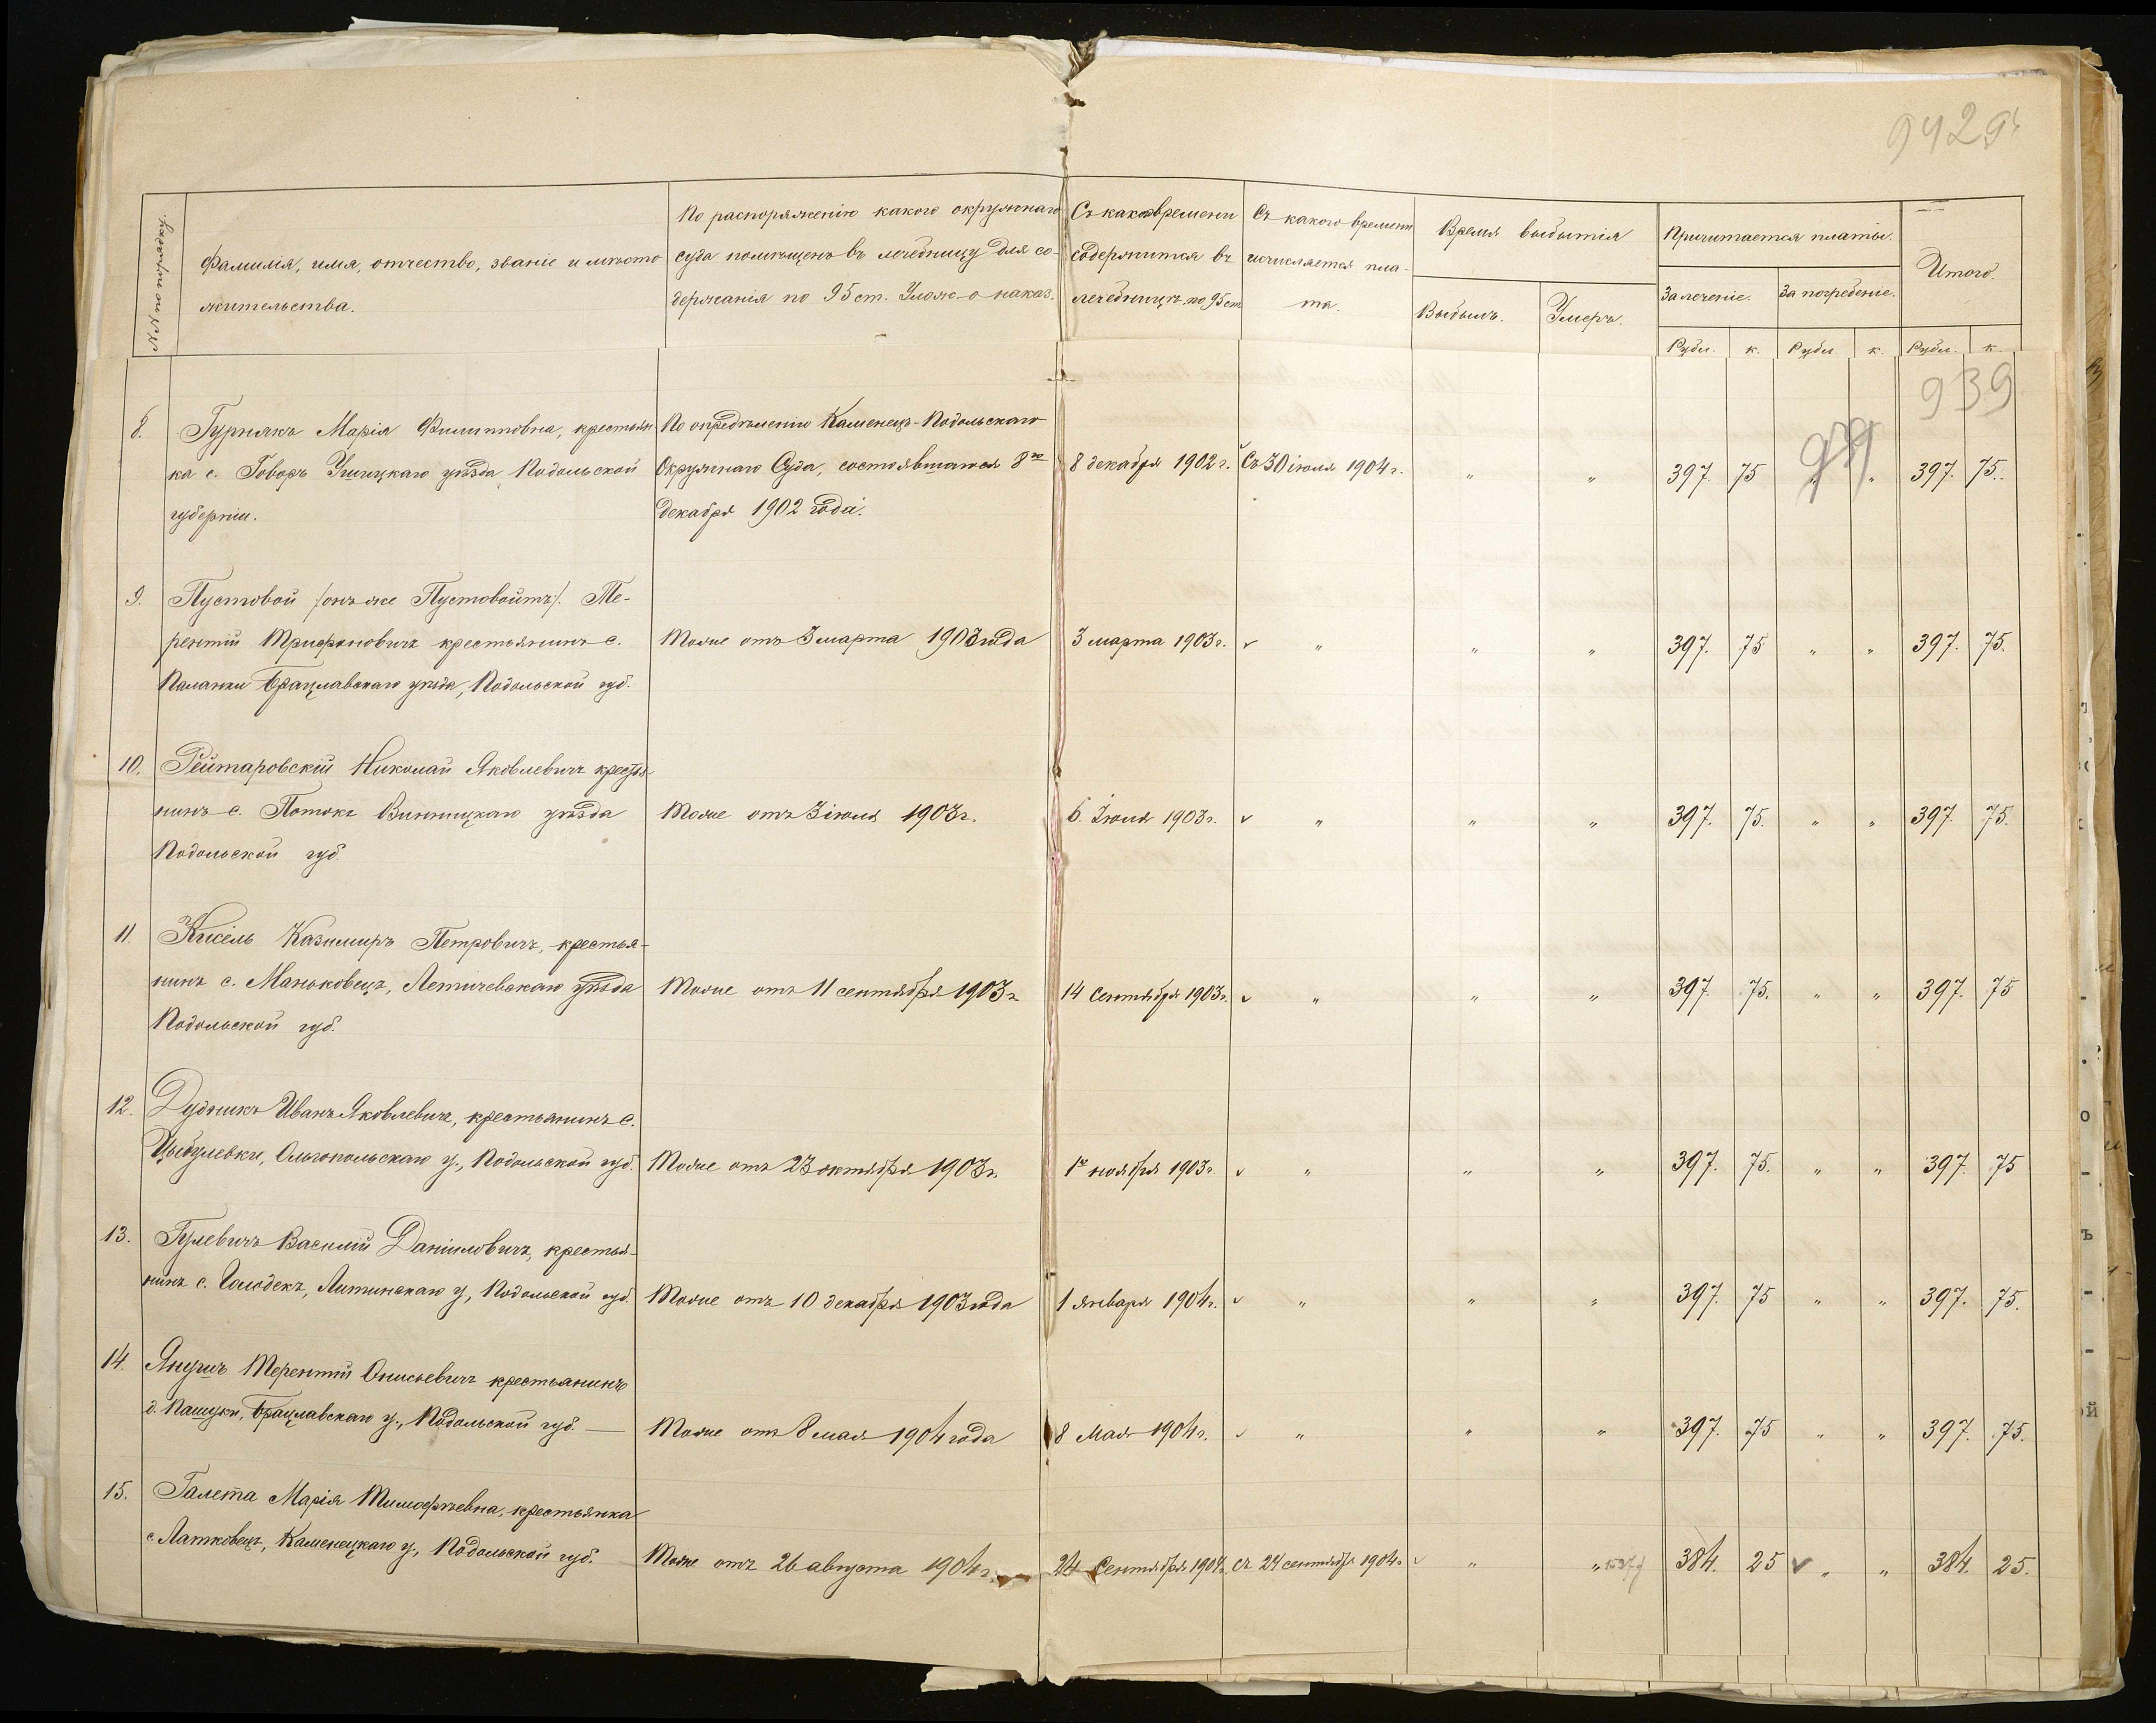 942 об
№№ по порядку.
Фамилія, имя, отчество, званіе и мѣсто
жительства.
По распоряженію какого окружнаго
суда помѣщенъ въ лечебницу для со-
держанія по 95 ст. Улож. о наказ.
Съ какого времени
содержится въ
лечебницѣ по 95 ст.
Съ какого времени
исчисляется пла-
та.
Время выбытія
Выбылъ. Умеръ.
Причитается платы.
За леченіе. За погребеніе.
Итого.
Рубл. к. Рубл к. Рубл. к.
939
8. Гурнякъ Марія Филипповна, крестьян- По опредѣленію Каменецъ-Подольскаго
ка с. Говоръ Ушицкаго уѣзда Подольской Окружнаго Суда, состоявшагося 8го 8 декабря 1902 г. Съ 30 іюля 1904 г. " " 397. 75 " " 397. 75.
губерніи. декабря 1902 года.
9. Пустовой /онъ же Пустовойтъ/. Те-
рентій Трифоновичъ крестьянинъ с. Тоже отъ 3 марта 1903 года 3 марта 1903 г. " " " 397. 75 " " 397. 75.
Паланки Брацлавскаго уѣзда, Подольской губ.
10. Рейтаровскій Николай Яковлевичъ крестья-
нинъ с. Потокъ Винницкаго уѣзда Тоже отъ 3 іюля 1903 г. 6. Іюля 1903 г. " " " 397. 75. " " 397. 75.
Подольской губ.
11. Кисель Казимиръ Петровичъ, крестья-
нинъ с. Маньковецъ, Летичевскаго уѣзда Тоже отъ 11 сентября 1903 г. 14 Сентября 1903 г. " " " 397. 75. " " 397. 75
Подольской губ.
12. Дудникъ Иванъ Яковлевичъ, крестьянинъ с.
Цыбулевки, Ольгопольскаго у., Подольской губ. Тоже отъ 23 октября 1903 г. 1го ноября 1903 г. " " " 397. 75. " " 397. 75
13. Гулевичъ Василій Даніиловичъ, крестья-
нинъ с. Голодекъ, Литинскаго у., Подольской губ. Тоже отъ 10 декабря 1903 года 1 января 1904 г. " " " 397. 75 " " 397. 75.
14. Терентій Онисьевичъ крестьянинъ
д. Брацлавскаго у., Подольской губ. — Тоже отъ 8 мая 1904 года 8 Мая 1904 г. " " " 397. 75 " " 397. 75.
15. Галета Марія Тимофѣевна, крестьянка
с. Латковецъ, Каменецкаго у., Подольской губ. Тоже отъ 26 августа 1904 г. 24 Сентября 1904 г. съ 24 сентября 1904 г. " " 384. 25 " " 384. 25.